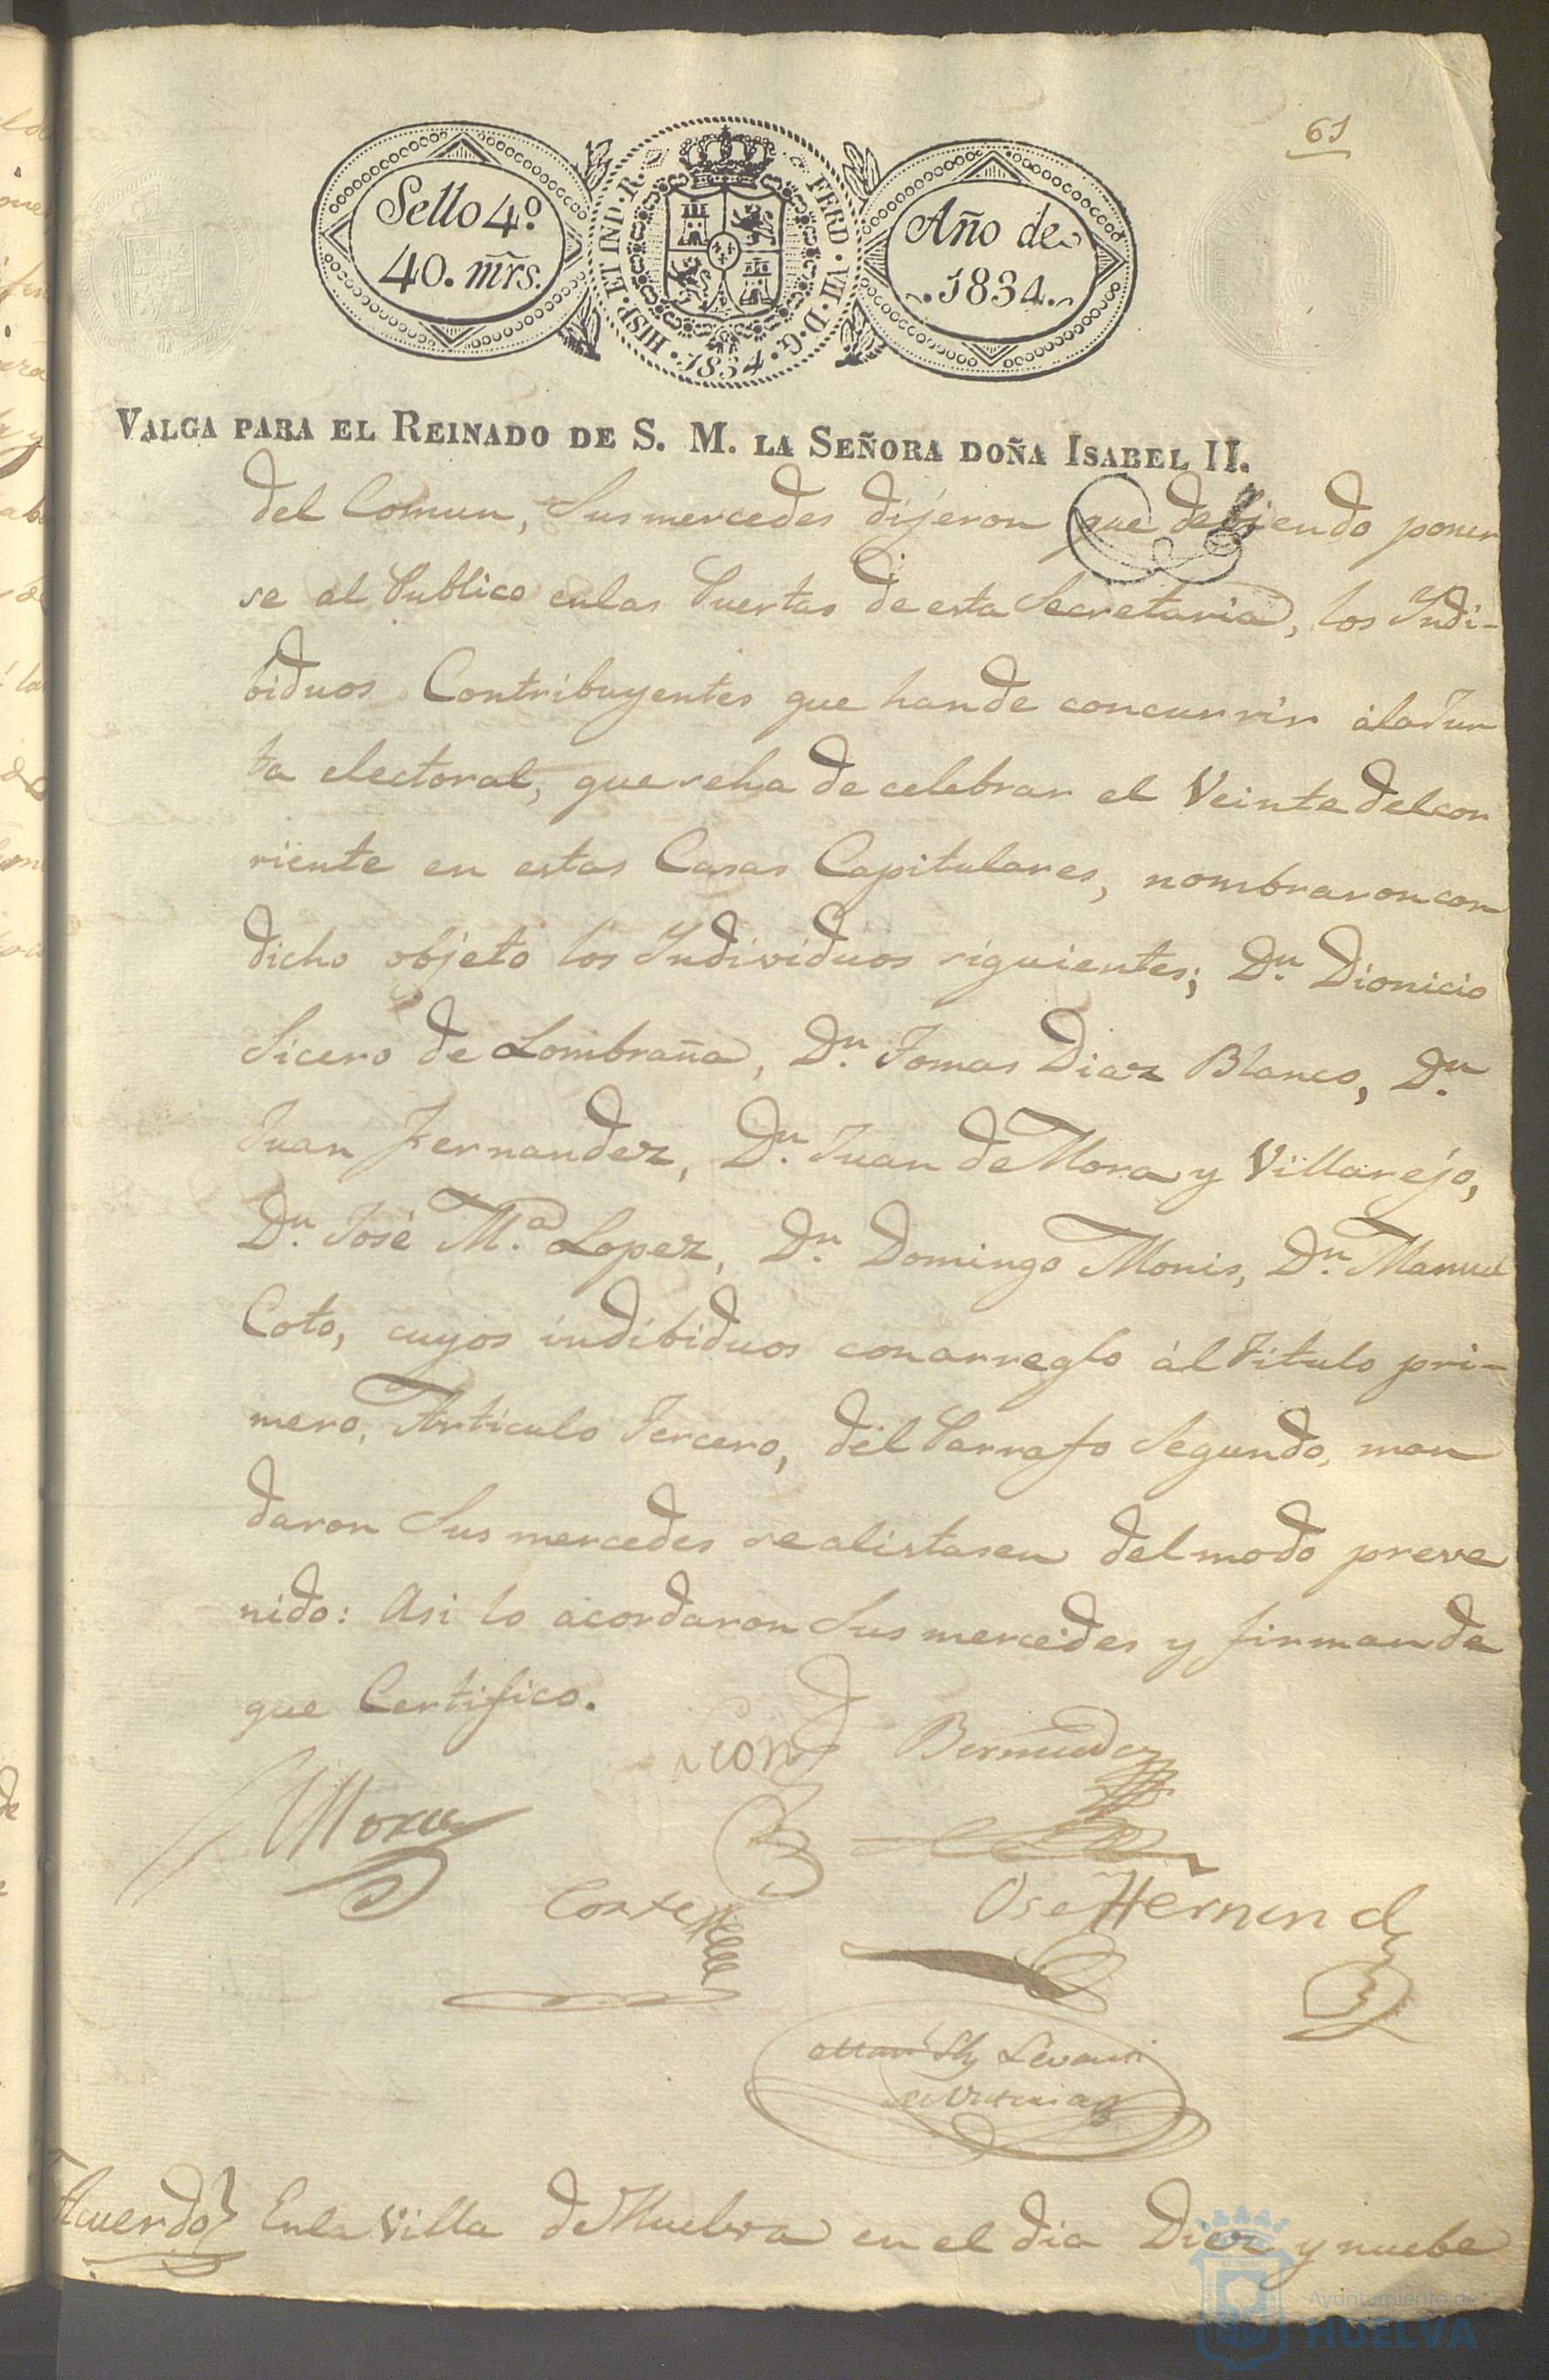 61
Sello 4º
40. mrs.
HISP · ET IND · R. FERD · VII · D · G · 1834
Año de
1834.
VALGA PARA EL REINADO DE S. M. LA SEÑORA DOÑA ISABEL II.
del Comun, Susmercedes dijeron que debiendo poner
se al Publico enlas Puertas de esta Secretaria, los Indi-
biduos Contribuyentes que hande concurrir álaJun
ta electoral, que seha de celebrar el Veinte delcor
riente en estas Casas Capitulares, nombraroncon
dicho objeto los Individuos siguientes; Dn. Dionicio
Sicero de Lombraña, Dn. Tomas Diaz Blanco, Dn.
Juan Fernandez, Dn. Juan de Mora y Villarejo,
Dn. José M.a Lopez, Dn. Domingo Monis, Dn. Manuel
Coto, cuyos indibiduos conarreglo ál titulo pri-
mero, Articulo Tercero, del Parrafo Segundo, man
daron Sus mercedes se alistasen del modo preve
nido: Asi lo acordaron Sus mercedes y firman de
que Certifico.
Bermudez
Mora
Hernand
Acuerdo} Enla Villa de Huelva en el dia Diez y nuebe
Ayuntamiento de
HUELVA